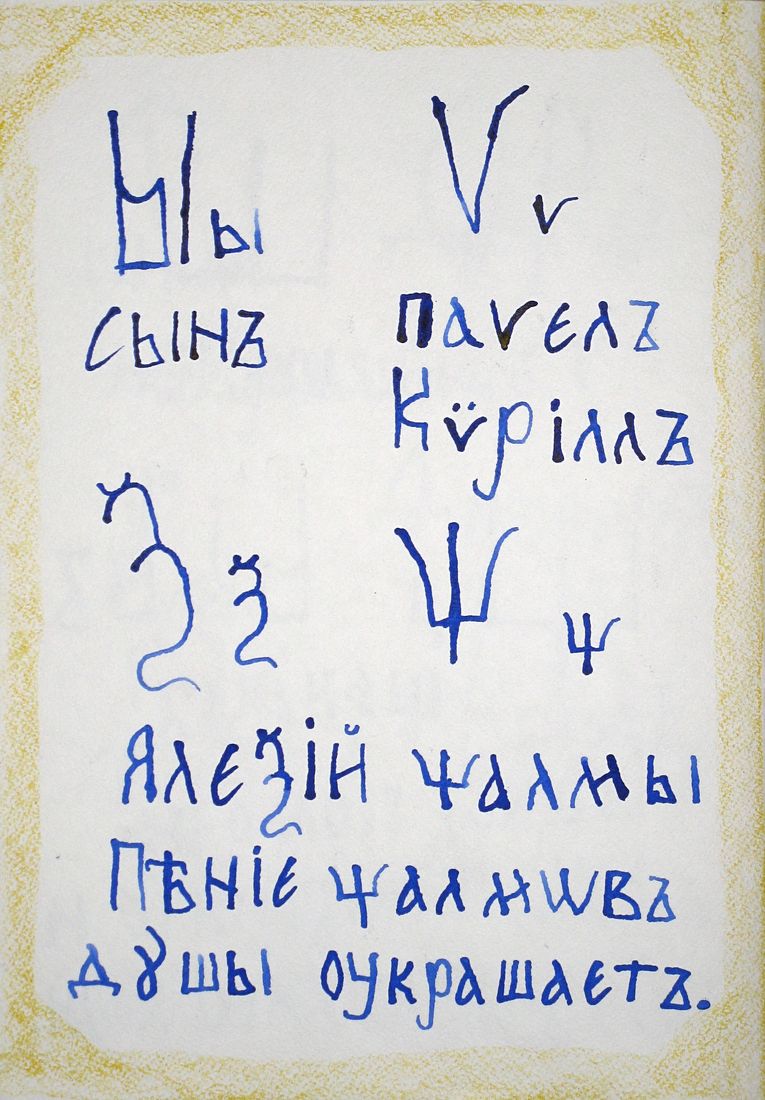 Ыы Ѵѵ
сынъ паѵелъ
Кѷріллъ
Ѯѯ Ѱѱ
Алеѯій ѱалмы
Пѣніе ѱалмѡвъ
дꙋшы оукрашаетъ.